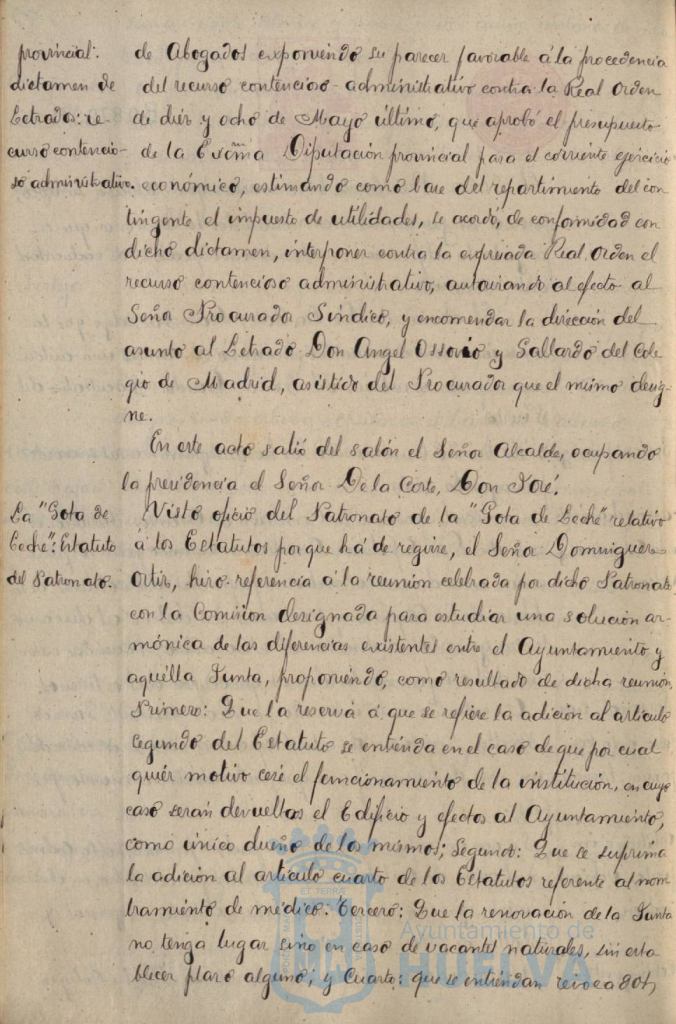 provincial:
dictamen de
Letrado: re-
curso contencio-
so administrativo.
de Abogados exponiendo su parecer favorable á la procedencia
del recurso contencioso-administrativo contra la Real Orden
de diez y ocho de Mayo último, que aprobó el presupuesto
de la Excmã Diputación provincial para el corriente ejercicio
económico, estimando como base del repartimiento del con
tingente el impuesto de utilidades, se acordó, de conformidad con
dicho dictamen, interponer contra la expresada Real Orden el
recurso contencioso administrativo, autorizando al efecto al
Señor Procurador Síndico, y encomendar la dirección del
asunto al Letrado Don Angel Ossorio y Gallardo del Cole
gio de Madrid, asistido del Procurador que el mismo desig-
ne.
En este acto salió del salón el Señor Alcalde, ocupando
la presidencia el Señor De la Corte, Don José.
La "Gota de
Leche": Estatuto
del Patronato.
Visto oficio del Patronato de la "Gota de Leche" relativo
á los Estatutos por que há de regirse, el Señor Dominguez
Ortiz, hizo referencia á la reunión celebrada por dicho Patronato
con la Comision designada para estudiar una solución ar-
mónica de las diferencias existentes entre el Ayuntamiento y
aquélla Junta, proponiendo, como resultado de dicha reunión,
Primero: Que la reserva á que se refiere la adición al articulo
segundo del Estatuto se entienda en el caso de que por cual
quiér motivo cesé el funcionamiento de la institución, en cuyo
caso serán devueltos el Edificio y efectos al Ayuntamiento,
como único dueño de los mismos; Segundo: Que se suprima
la adición al artículo cuarto de los Estatutos referente al nom
bramiento de médico. Tercero: Que la renovación de la Junta
no tenga lugar sino en caso de vacantes naturales, sin esta
blecer plazo alguno; y Cuarto: que se entiendan revocados,
Ayuntamiento de
HUELVA